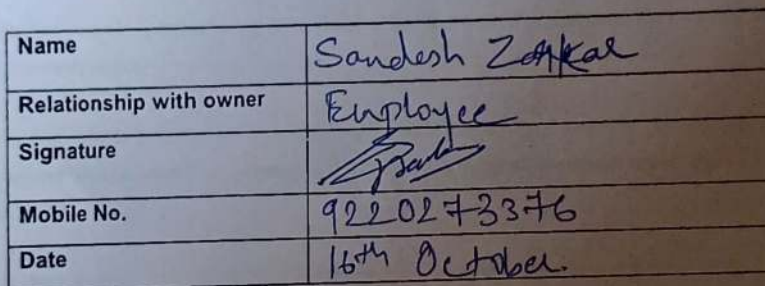 Name Sandesh Zarkar
Relationship with owner Employee
Signature
Mobile No. 9220273376
Date 16th October.